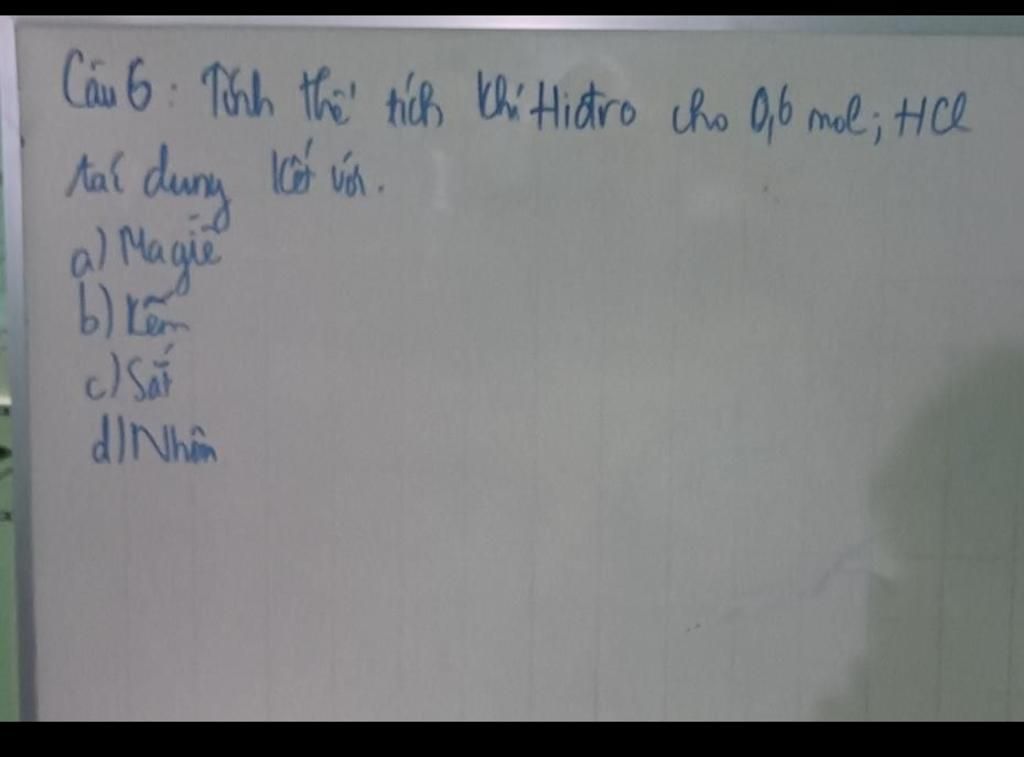 Câu 6: Tính thể tích khí Hiđro cho 0,6 mol; HCl
tác dung kết với.
a) Magiê
b) Kẽm
c) Sắt
d) Nhôm